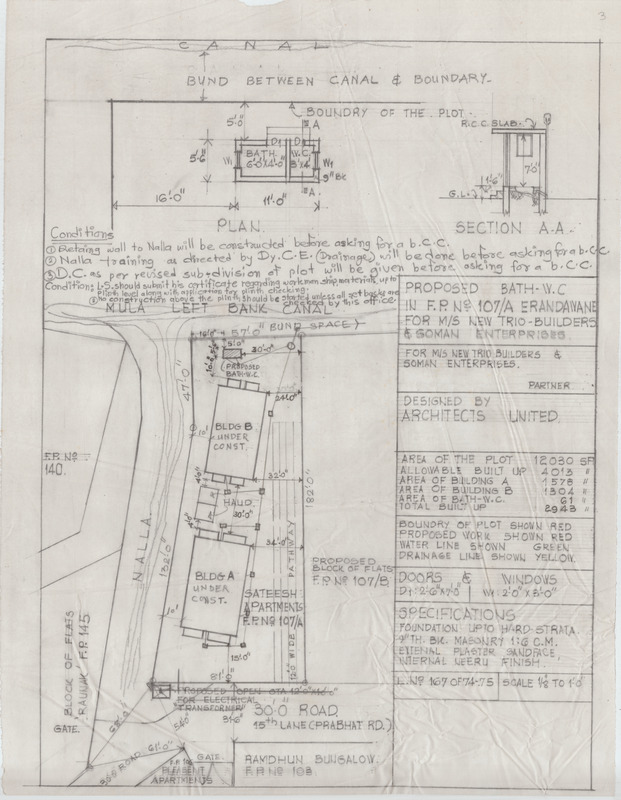 3
CANAL
BUND BETWEEN CANAL & BOUNDARY.
BOUNDRY OF THE PLOT.
5'-0"
A
D1
D1
5'-6"
W1
BATH
6'-0"X4'-0"
W.C
3'X4'
W1
9" BK
A
16'-0"
11'-0"
PLAN.
R.C.C SLAB.
7'-0"
1'-6"
G.L.
SECTION A-A.
Conditions
① Retaining wall to Nalla will be constructed before asking for a b.C.C.
② Nalla training as directed by Dy.C.E (Drainage) will be done before asking for a b.C.C.
③ D.C. as per revised sub-division of plot will be given before asking for a b.C.C.
Condition: L.S. should submit his certificate regarding workmanship materials, up to
Plinth level along with application for plinth checking.
No construction above the plinth should be started unless all set backs are
checked by this office.
MULA LEFT BANK CANAL
57'-0" (BUND SPACE)
5'-0"
30'-0"
(PROPOSED
BATH-W.C.
47'-0"
24'-0"
BLDG B
UNDER
CONST.
10'
F.P. NO
140.
32'-0"
182'-0"
4'-6"
HAUD
30'-0"
34'-0"
NALLA
132'-0"
PATHWAY
12'-0" WIDE
PROPOSED
BLOCK OF FLATS
F.P. NO 107/B.
BLDG A
UNDER
CONST.
SATEESH
APARTMENTS
F.P. NO 107/A
10'
15'-0"
81'-0"
PROPOSED OPEN OTA 12'-0"X10'-0"
FOR ELECTRICAL
TRANSFORMER
BLOCK OF FLATS
'RAUNAK' F.P. 145
GATE.
30-0 ROAD.
15th LANE (PRABHAT RD.)
61'-0"
30-0 ROAD
GATE.
F.P. 106
PLEASENT
APARTMENTS
RAMDHUN BUNGALOW.
F.P. NO 108.
PROPOSED BATH-W.C
IN F.P. NO 107/A ERANDAWANE
FOR M/S NEW TRIO-BUILDERS
& SOMAN ENTERPRISES.
FOR M/S NEW TRIO BUILDERS &
SOMAN ENTERPRISES.
PARTNER
DESIGNED BY
ARCHITECTS UNITED.
AREA OF THE PLOT 12030 SF
ALLOWABLE BUILT UP 4013 "
AREA OF BUILDING A 1578 "
AREA OF BUILDING B 1304 "
AREA OF BATH-W.C. 61 "
TOTAL BUILT UP 2943 "
BOUNDRY OF PLOT SHOWN RED
PROPOSED WORK SHOWN RED
WATER LINE SHOWN GREEN
DRAINAGE LINE SHOWN YELLOW.
DOORS & WINDOWS
D1: 2'-6"X7'-0" W1: 2'-0"X3'-0"
SPECIFICATIONS
FOUNDATION UPTO HARD STRATA
9" TH. BK. MASONRY 1:6 C.M.
EXTENAL PLASTER SANDFACE,
INTERNAL NEERU FINISH.
L. NO 167 OF 74-75 SCALE 1/8 TO 1'-0"